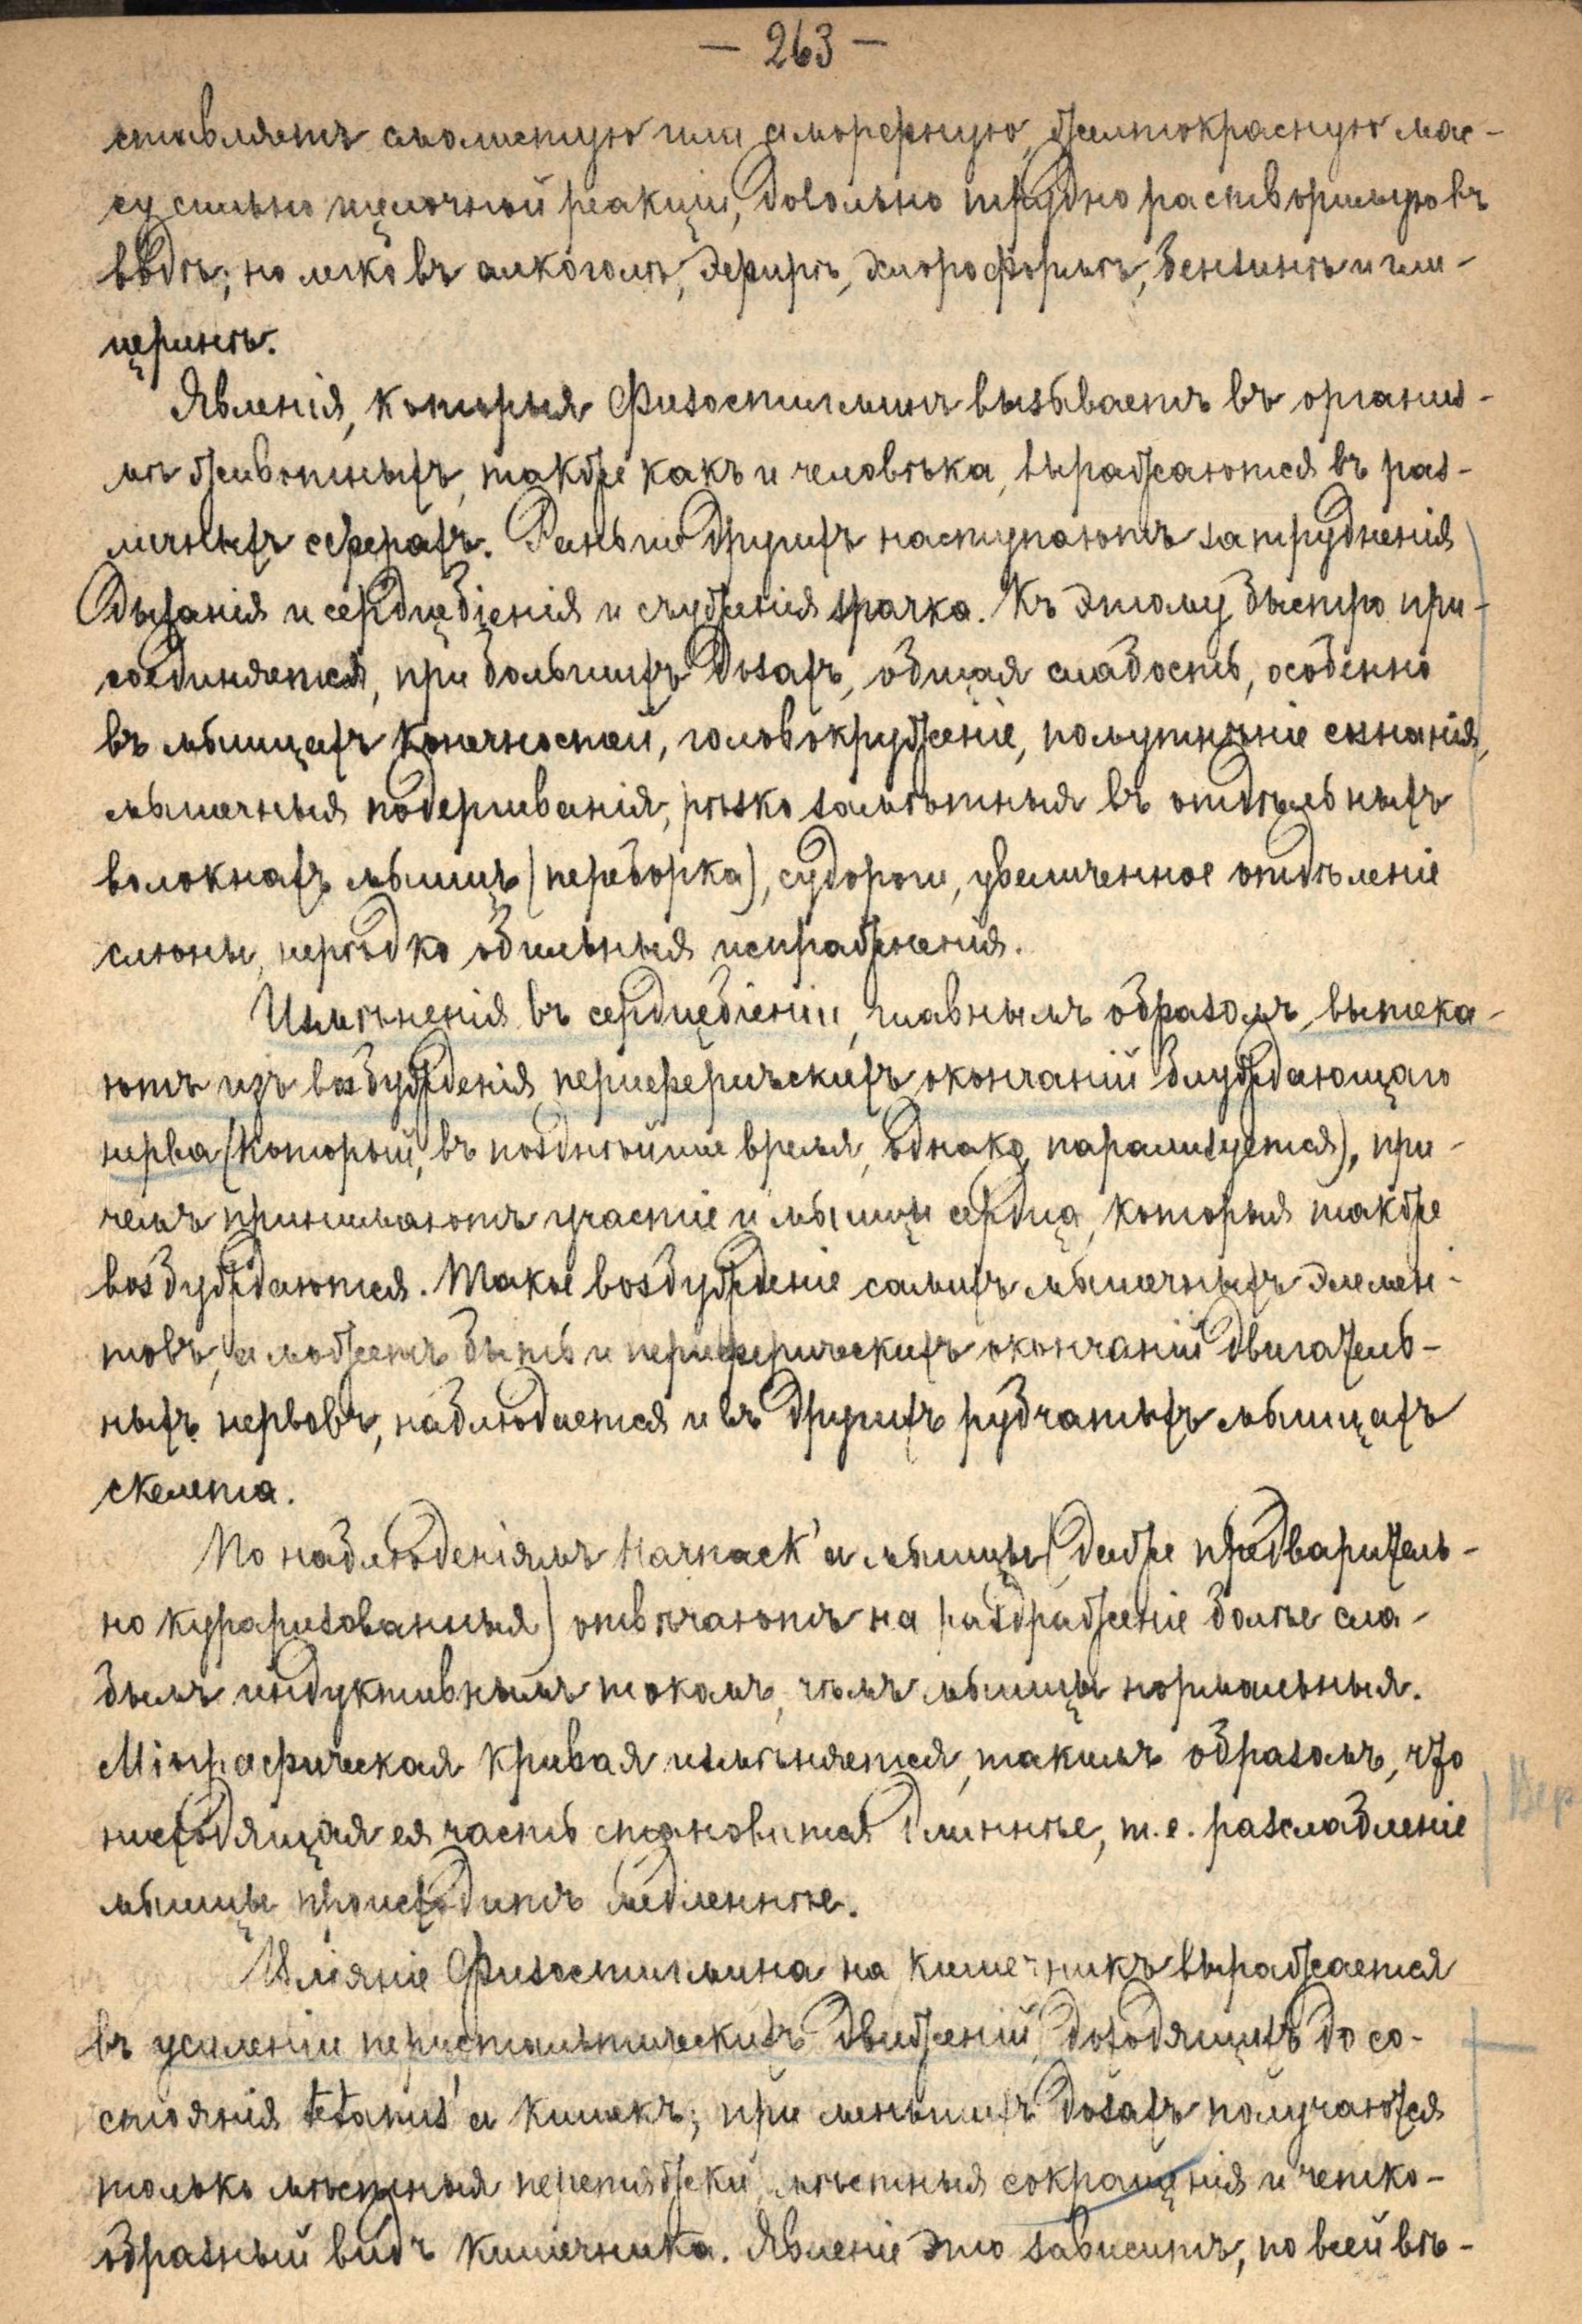 — 263 —
ставляетъ смолистую или аморфную, желтокрасную мас-
су сильно щелочной реакціи, довольно трудно растворимую въ
водѣ; но легко въ алкоголѣ, эфирѣ, хлороформѣ, бензинѣ и гли-
церинѣ.
Явленія, которыя физостигминъ вызываетъ въ организ-
мѣ животныхъ, также какъ и человѣка, выражаются въ раз-
личныхъ сферахъ. Раньше другихъ наступаютъ затрудненія
дыханія и сердцебіенія и съуженія зрачка. Къ этому быстро при-
соединяется, при большихъ дозахъ, общая слабость, особенно
въ мышцахъ конечностей, головокруженіе, помутнѣніе сознанія,
мышечныя подергиванія, рѣзко замѣтныя въ отдѣльныхъ
волокнахъ мышцъ (переборка), судороги, увеличенное отдѣленіе
слюны, нерѣдко обильныя испражненія.
Измѣненія въ сердцебіеніи, главнымъ образомъ, вытека-
ютъ изъ возбужденія периферическихъ окончаній блуждающаго
нерва (который, въ позднѣйшее время, однако, парализуется), при-
чемъ принимаютъ участіе и мышцы сердца, которыя также
возбуждаются. Такое возбужденіе самихъ мышечныхъ элемен-
товъ, а можетъ быть и периферическихъ окончаній двигатель-
ныхъ нервовъ, наблюдается и въ другихъ рубчатыхъ мышцахъ
скелета.
По наблюденіямъ Harnack'а мышцы (даже предваритель-
но кураризованныя) отвѣчаютъ на раздраженіе болѣе сла-
бымъ индуктивнымъ токомъ, чѣмъ мышцы нормальныя.
Міографическая кривая измѣняется, такимъ образомъ, что
нисходящая ея часть становится длиннѣе, т.е. разслабленіе
мышцы происходитъ медленнѣе.
Вліяніе физостигмина на кишечникъ выражается
въ усиленіи перистальтическихъ движеній, доходящихъ до со-
стоянія tetanus'а кишекъ; при меньшихъ дозахъ получаются
только мѣстныя перетяжки, мѣстныя сокращенія и четко-
образный видъ кишечника. Явленіе это зависитъ, по всей вѣ-